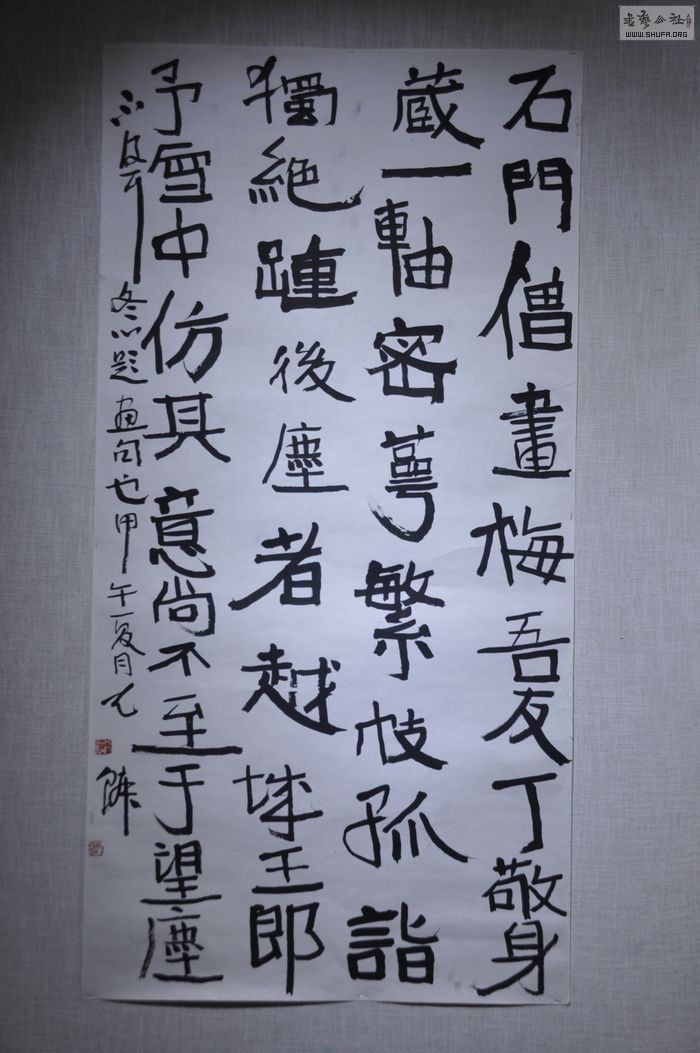 石門僧畫梅吾友丁敬身
蔵一軸密萼繁枝孤詣
獨絶踵後塵者越城王郎
予雪中仿其意尚不至于望塵
冬心題画句也甲午夏月
WWW.SHUFA.ORG